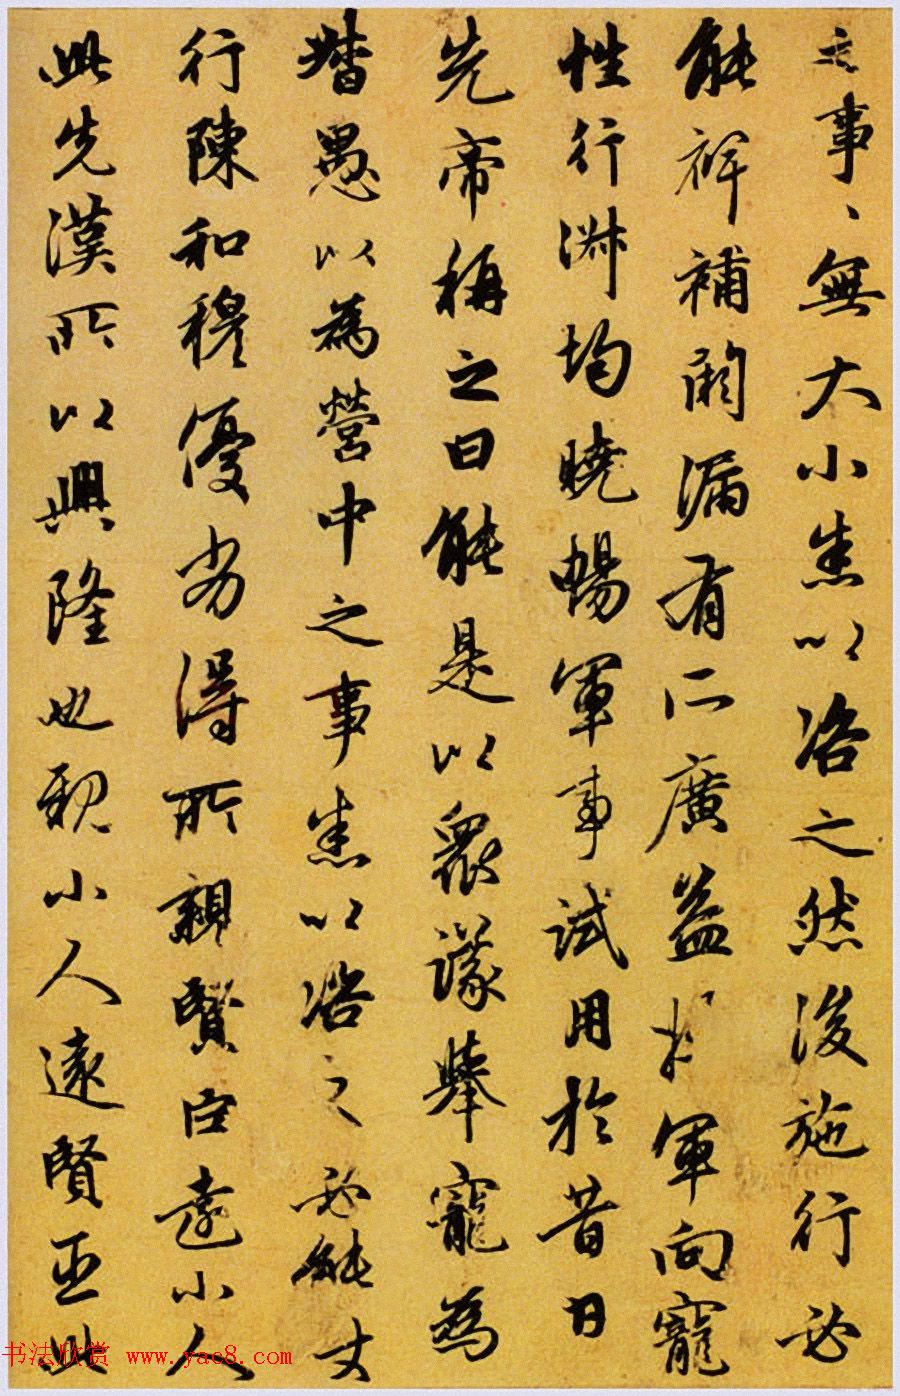 之事、無大小悉以咨之然後施行必
能裨補闕漏有所廣益將軍向寵
性行淑均曉暢軍事試用於昔日
先帝稱之曰能是以衆議舉寵為
督愚以為營中之事悉以咨之必能使
行陳和穆優劣得所親賢臣遠小人
此先漢所以興隆也親小人遠賢臣此
书法欣赏 www.yac8.com